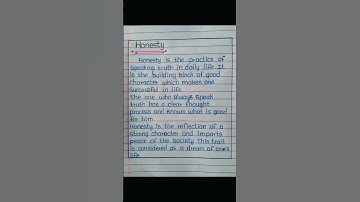 Honesty
Honesty is the practice of
speaking truth in daily life It
is the building block of good
character which makes one
successful in life.
The one who always speak
truth has a clear thought
process and knows what is good
for him.
Honesty is the reflection of a
strong character and imparts
peace of the society This trait
is considered as a dream of ones
life.